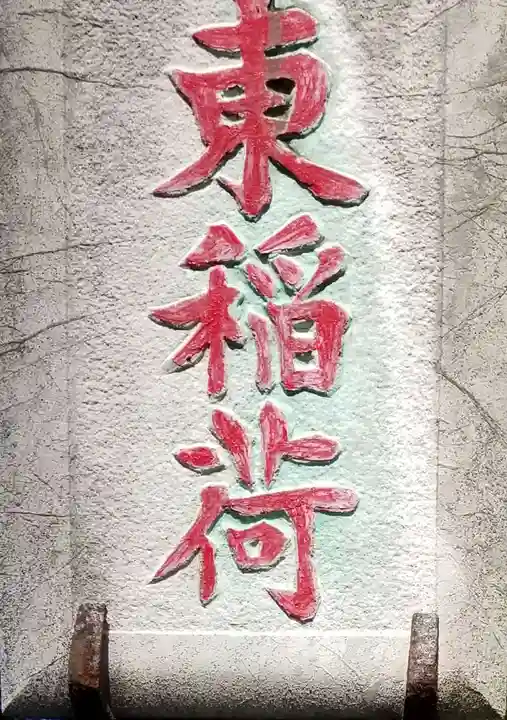 東稲荷